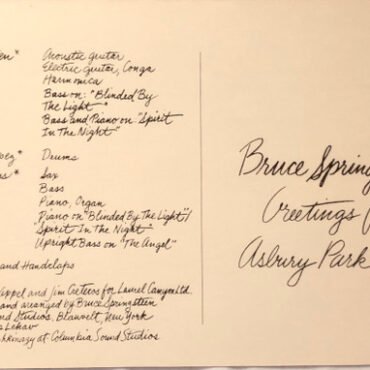 en* Acoustic guitar
Electric guitar, Conga
Harmonica
Bass on: "Blinded By
The Light"
Bass and Piano on "Spirit
In The Night"
Drums
Sax
Bass
Piano, Organ
Piano on "Blinded By The Light"/
"Spirit In The Night"
Upright Bass on "The Angel"
and Handclaps
Appel and Jim Cretecos for Laurel Canyon Ltd.
and arranged by Bruce Springsteen
nd Studios, Blauvelt, New York
s Lehav
at Columbia Sound Studios
Bruce Spring
Greetings
Asbury Park